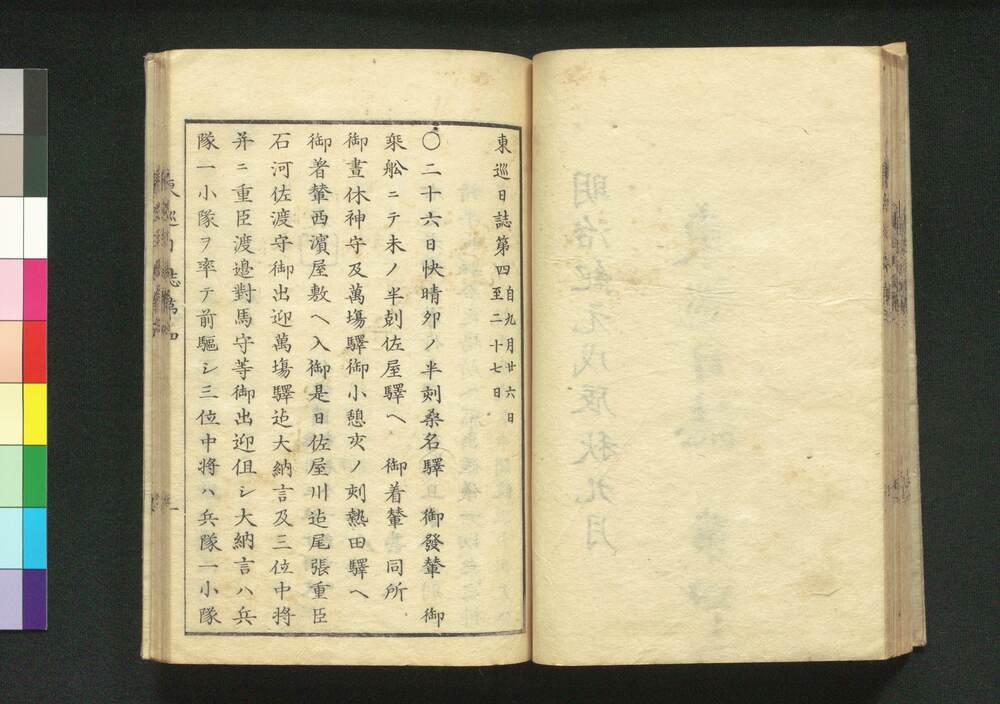 東巡日誌第四 自九月廿六日
至二十七日
〇二十六日快晴卯ノ半刻桑名驛 御發輦 御
乘舩ニテ未ノ半刻佐屋驛ヘ 御着輦同所
御晝休神守及萬塲驛御小憩亥ノ刻熱田驛ヘ
御着輦西濵屋敷ヘ入御是日佐屋川迠尾張重臣
石河佐渡守御出迎萬塲驛迠大納言及三位中將
并ニ重臣渡邉對馬守等御出迎但シ大納言ハ兵
隊一小隊ヲ率テ前驅シ三位中將ハ兵隊一小隊
明治紀元戊辰秋九月